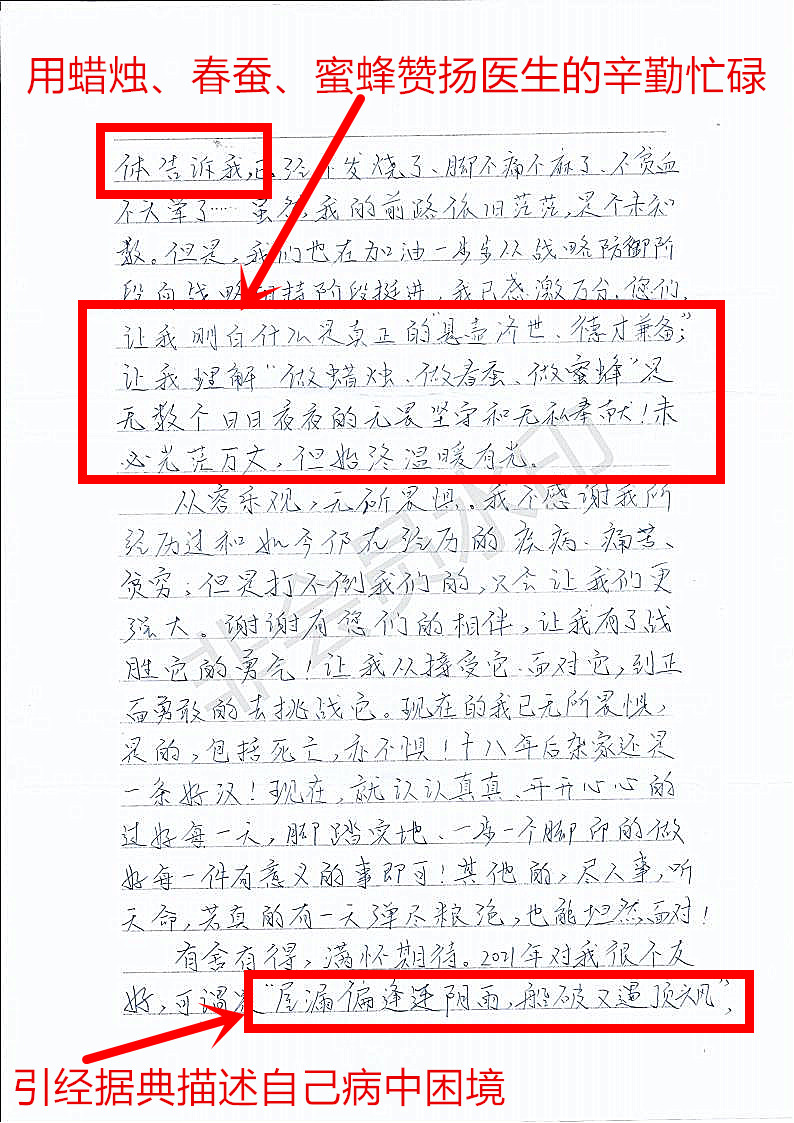 用蜡烛、春蚕、蜜蜂赞扬医生的辛勤忙碌
体告诉我,已经不发烧了、脚不痛不麻了、不贫血
不头晕了……虽然,我的前路依旧茫茫,是个未知
数。但是,我们也在加油一步步从战略防御阶
段向战略相持阶段挺进,我已感激万分。您们,
让我明白什么是真正的“悬壶济世、德才兼备”;
让我理解“做蜡烛、做春蚕、做蜜蜂”是
无数个日日夜夜的无畏坚守和无私奉献!未
必光茫万丈,但始终温暖有光。
从容乐观,无所畏惧。我不感谢我所
经历过和如今仍在经历的疾病、痛苦、
贫穷;但是打不倒我们的,只会让我们更
强大。谢谢有您们的相伴,让我有了战
胜它的勇气!让我从接受它、面对它,到正
面勇敢的去挑战它。现在的我已无所畏惧,
是的,包括死亡,亦不惧!十八年后杂家还是
一条好汉!现在,就认认真真、开开心心的
过好每一天,脚踏实地、一步一个脚印的做
好每一件有意义的事即可!其他的,尽人事,听
天命,若真的有一天弹尽粮绝,也能坦然面对!
有舍有得,满怀期待。2021年对我很不友
好,可谓是“屋漏偏逢连阴雨,船破又遇顶头风”,
引经据典描述自己病中困境
非会员水印